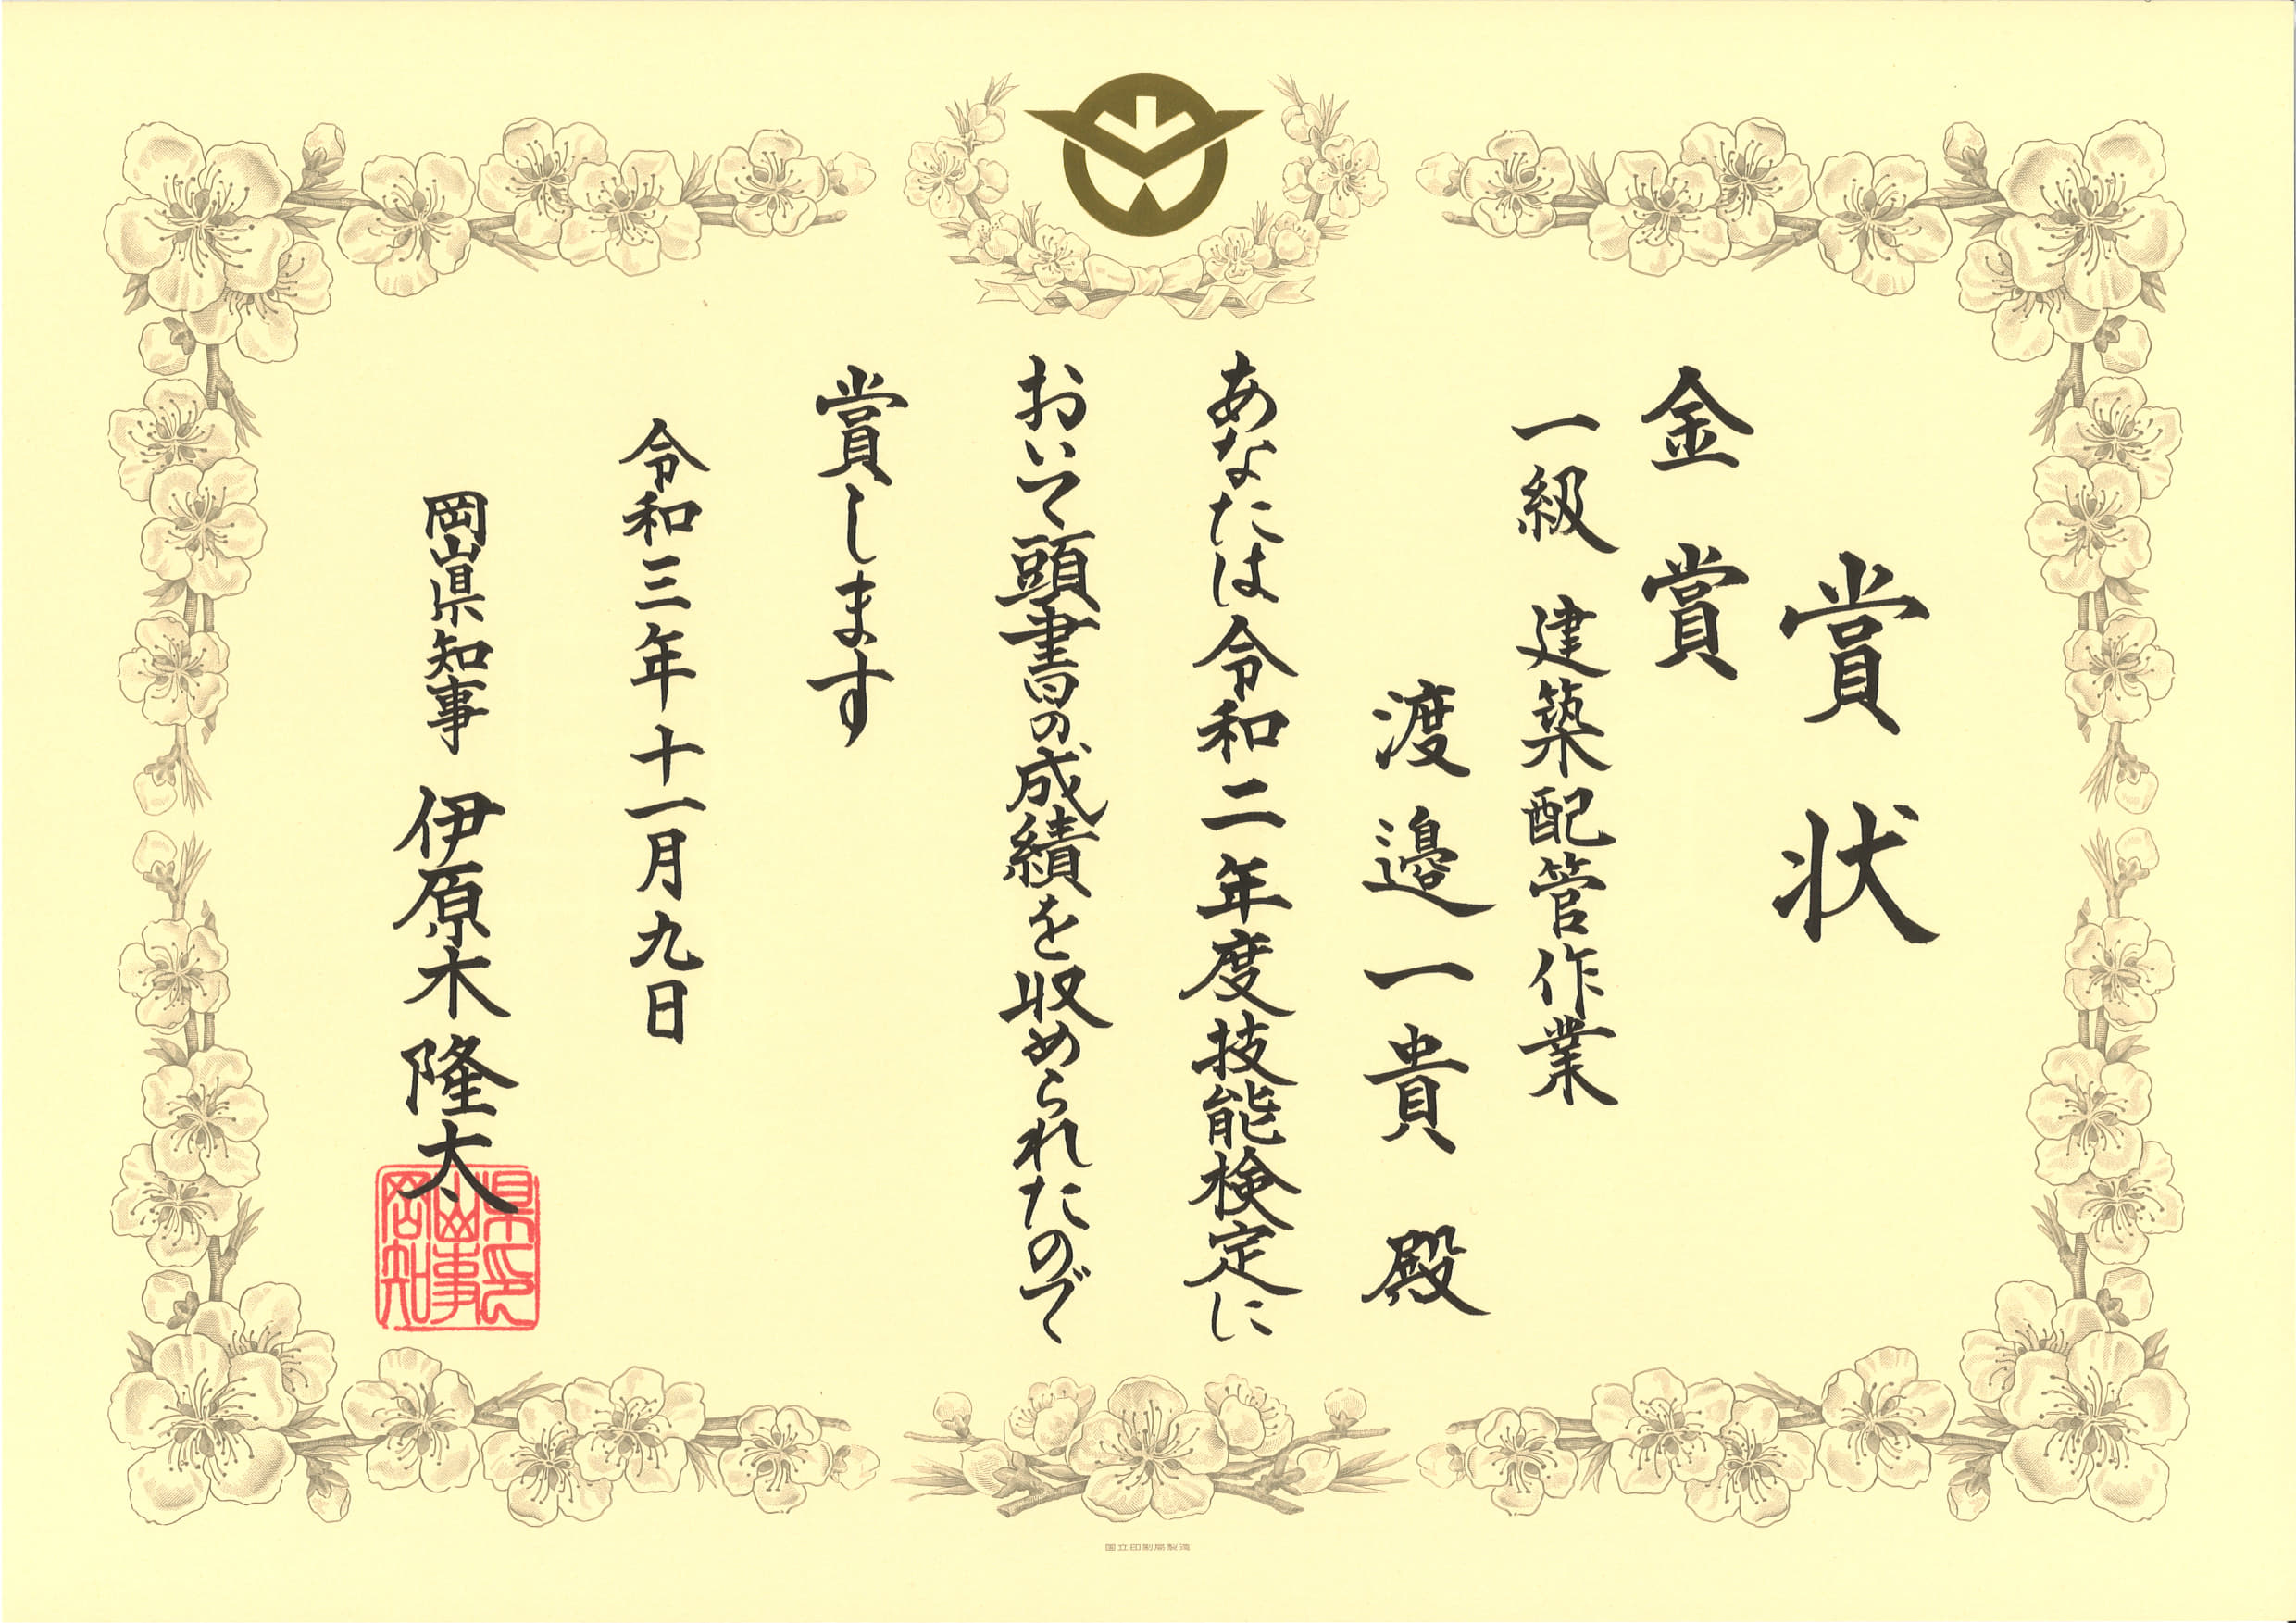 賞状
金賞
一級 建築配管作業
渡邉一貴 殿
あなたは令和二年度技能検定に
おいて頭書の成績を収められたので
賞します
令和三年十一月九日
岡山県知事 伊原木隆太
岡山県知事印
国立印刷局製造